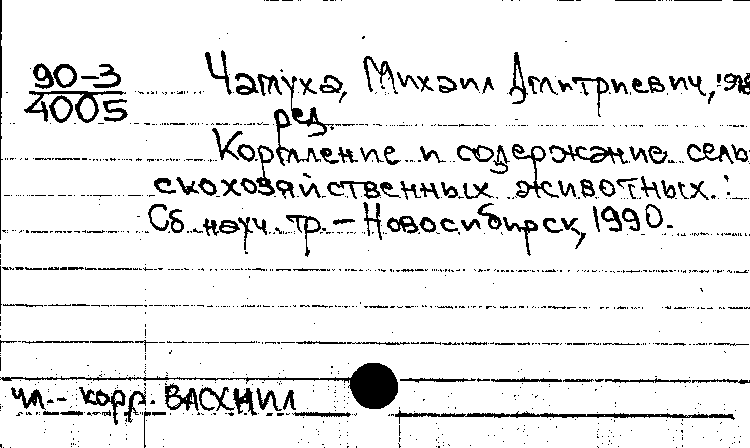 90-3
4005
Чамуха, Михаил Дмитриевич,
ред.
Кормление и содержание сель
скохозяйственных животных. :
Сб. науч. тр. – Новосибирск, 1990.
чл.-корр. ВАСХНИЛ